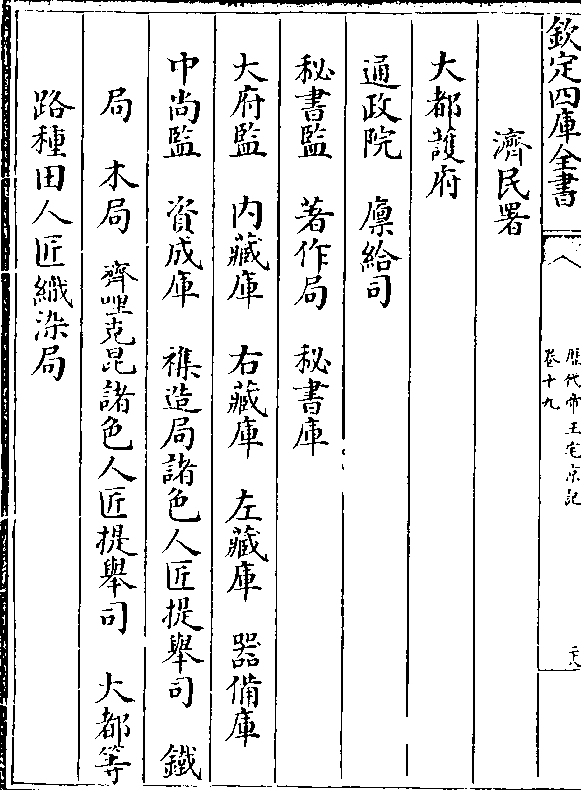 欽定四庫全書
歷代帝王宅京記
卷十九
二八
濟民署
大都護府
通政院　廪給司
秘書監　著作局　秘書庫
大府監　内藏庫　右藏庫　左藏庫　器備庫
中尚監　資成庫　襍造局諸色人匠提舉司　鐵
局　木局　齊哩克昆諸色人匠提舉司　大都等
路種田人匠織染局